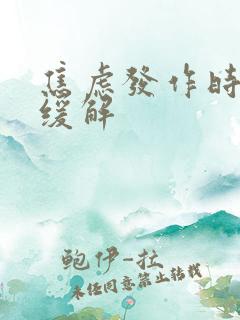 焦虑發作時
缓解
鲍伊-拉
未经同意禁止转载